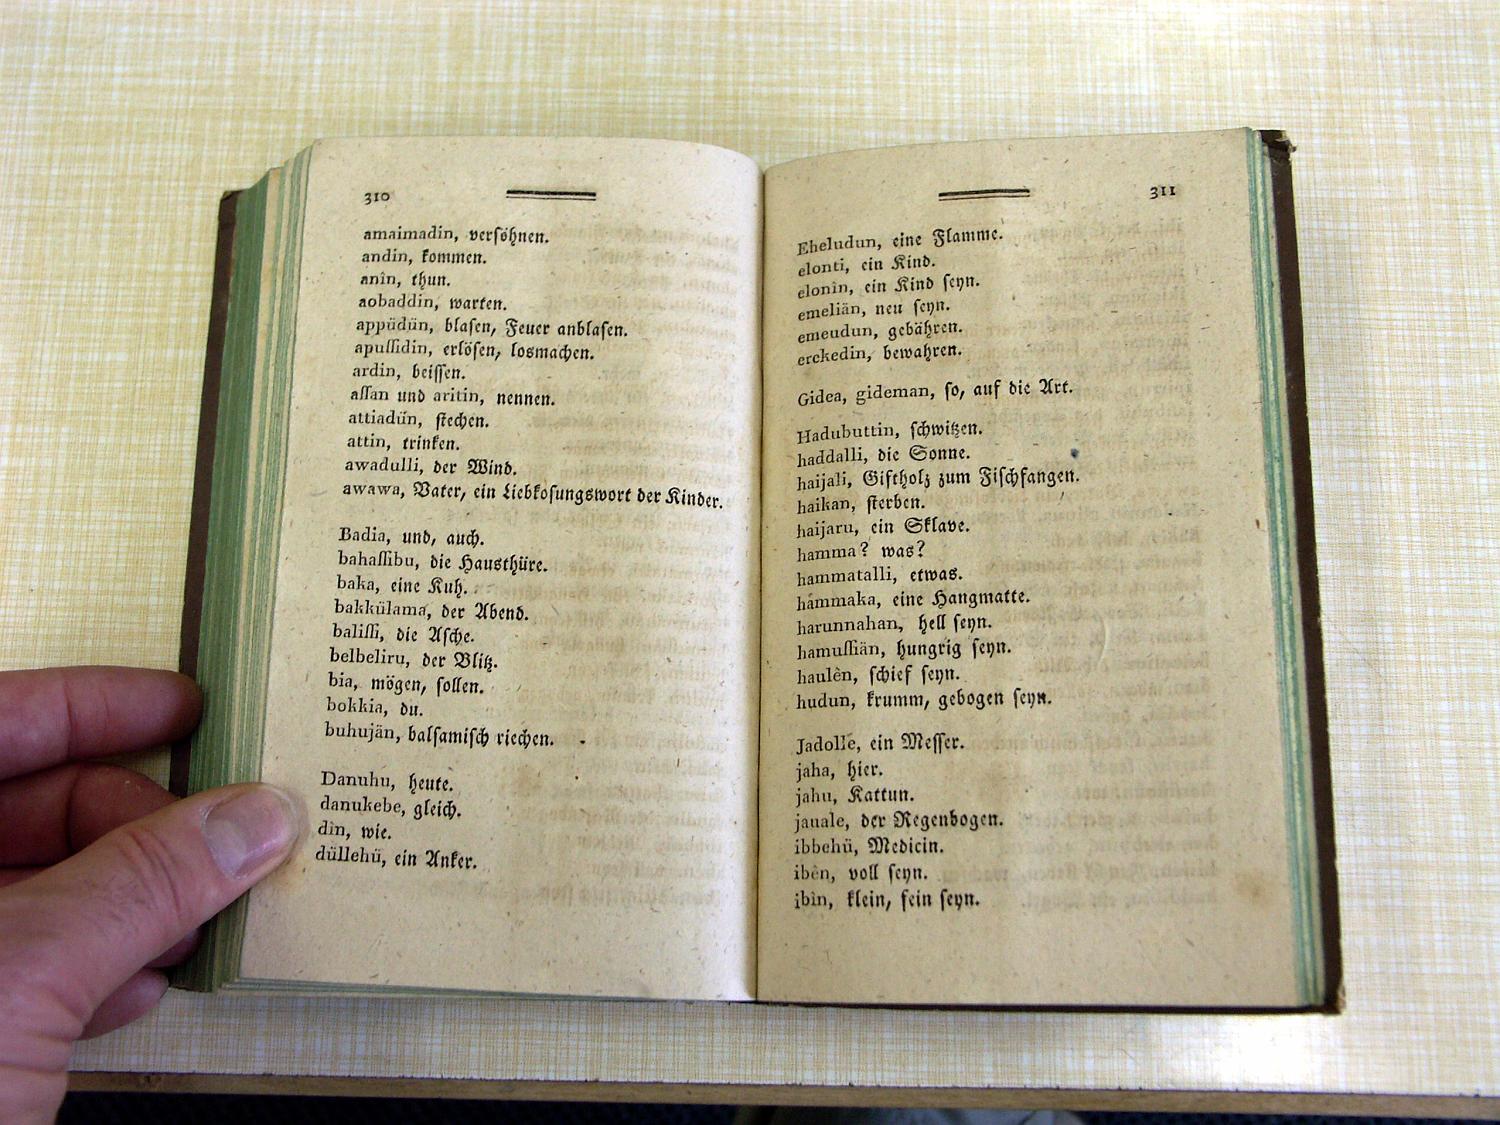 310
amaimadin, verſöhnen.
andin, kommen.
anîn, thun.
aobaddin, warten.
appüdün, blaſen, Feuer anblaſen.
apuſſidin, erlöſen, losmachen.
ardin, beiſſen.
aſſan und aritin, nennen.
attiadün, ſtechen.
attin, trinken.
awadulli, der Wind.
awawa, Vater, ein Liebkoſungswort der Kinder.
Badia, und, auch.
bahaſſibu, die Hausthüre.
baka, eine Kuh.
bakkülama, der Abend.
baliſſi, die Aſche.
belbeliru, der Blitz.
bia, mögen, ſollen.
bokkia, du.
buhujän, balſamiſch riechen.
Danuhu, heute.
danukebe, gleich.
dîn, wie.
düllehü, ein Anker.
311
Eheludun, eine Flamme.
elonti, ein Kind.
elonîn, ein Kind ſeyn.
emeliän, neu ſeyn.
emeudun, gebähren.
erckedin, bewahren.
Gidea, gideman, ſo, auf die Art.
Hadubuttin, ſchwitzen.
haddalli, die Sonne.
haijali, Giftholz zum Fiſchfangen.
haikan, ſterben.
haijaru, ein Sklave.
hamma? was?
hammatalli, etwas.
hámmaka, eine Hangmatte.
harunnahan, hell ſeyn.
hamuſſiän, hungrig ſeyn.
haulên, ſchief ſeyn.
hudun, krumm, gebogen ſeyn.
Jadolle, ein Meſſer.
jaha, hier.
jahu, Kattun.
jauale, der Regenbogen.
ibbehü, Medicin.
ibên, voll ſeyn.
ibîn, klein, fein ſeyn.